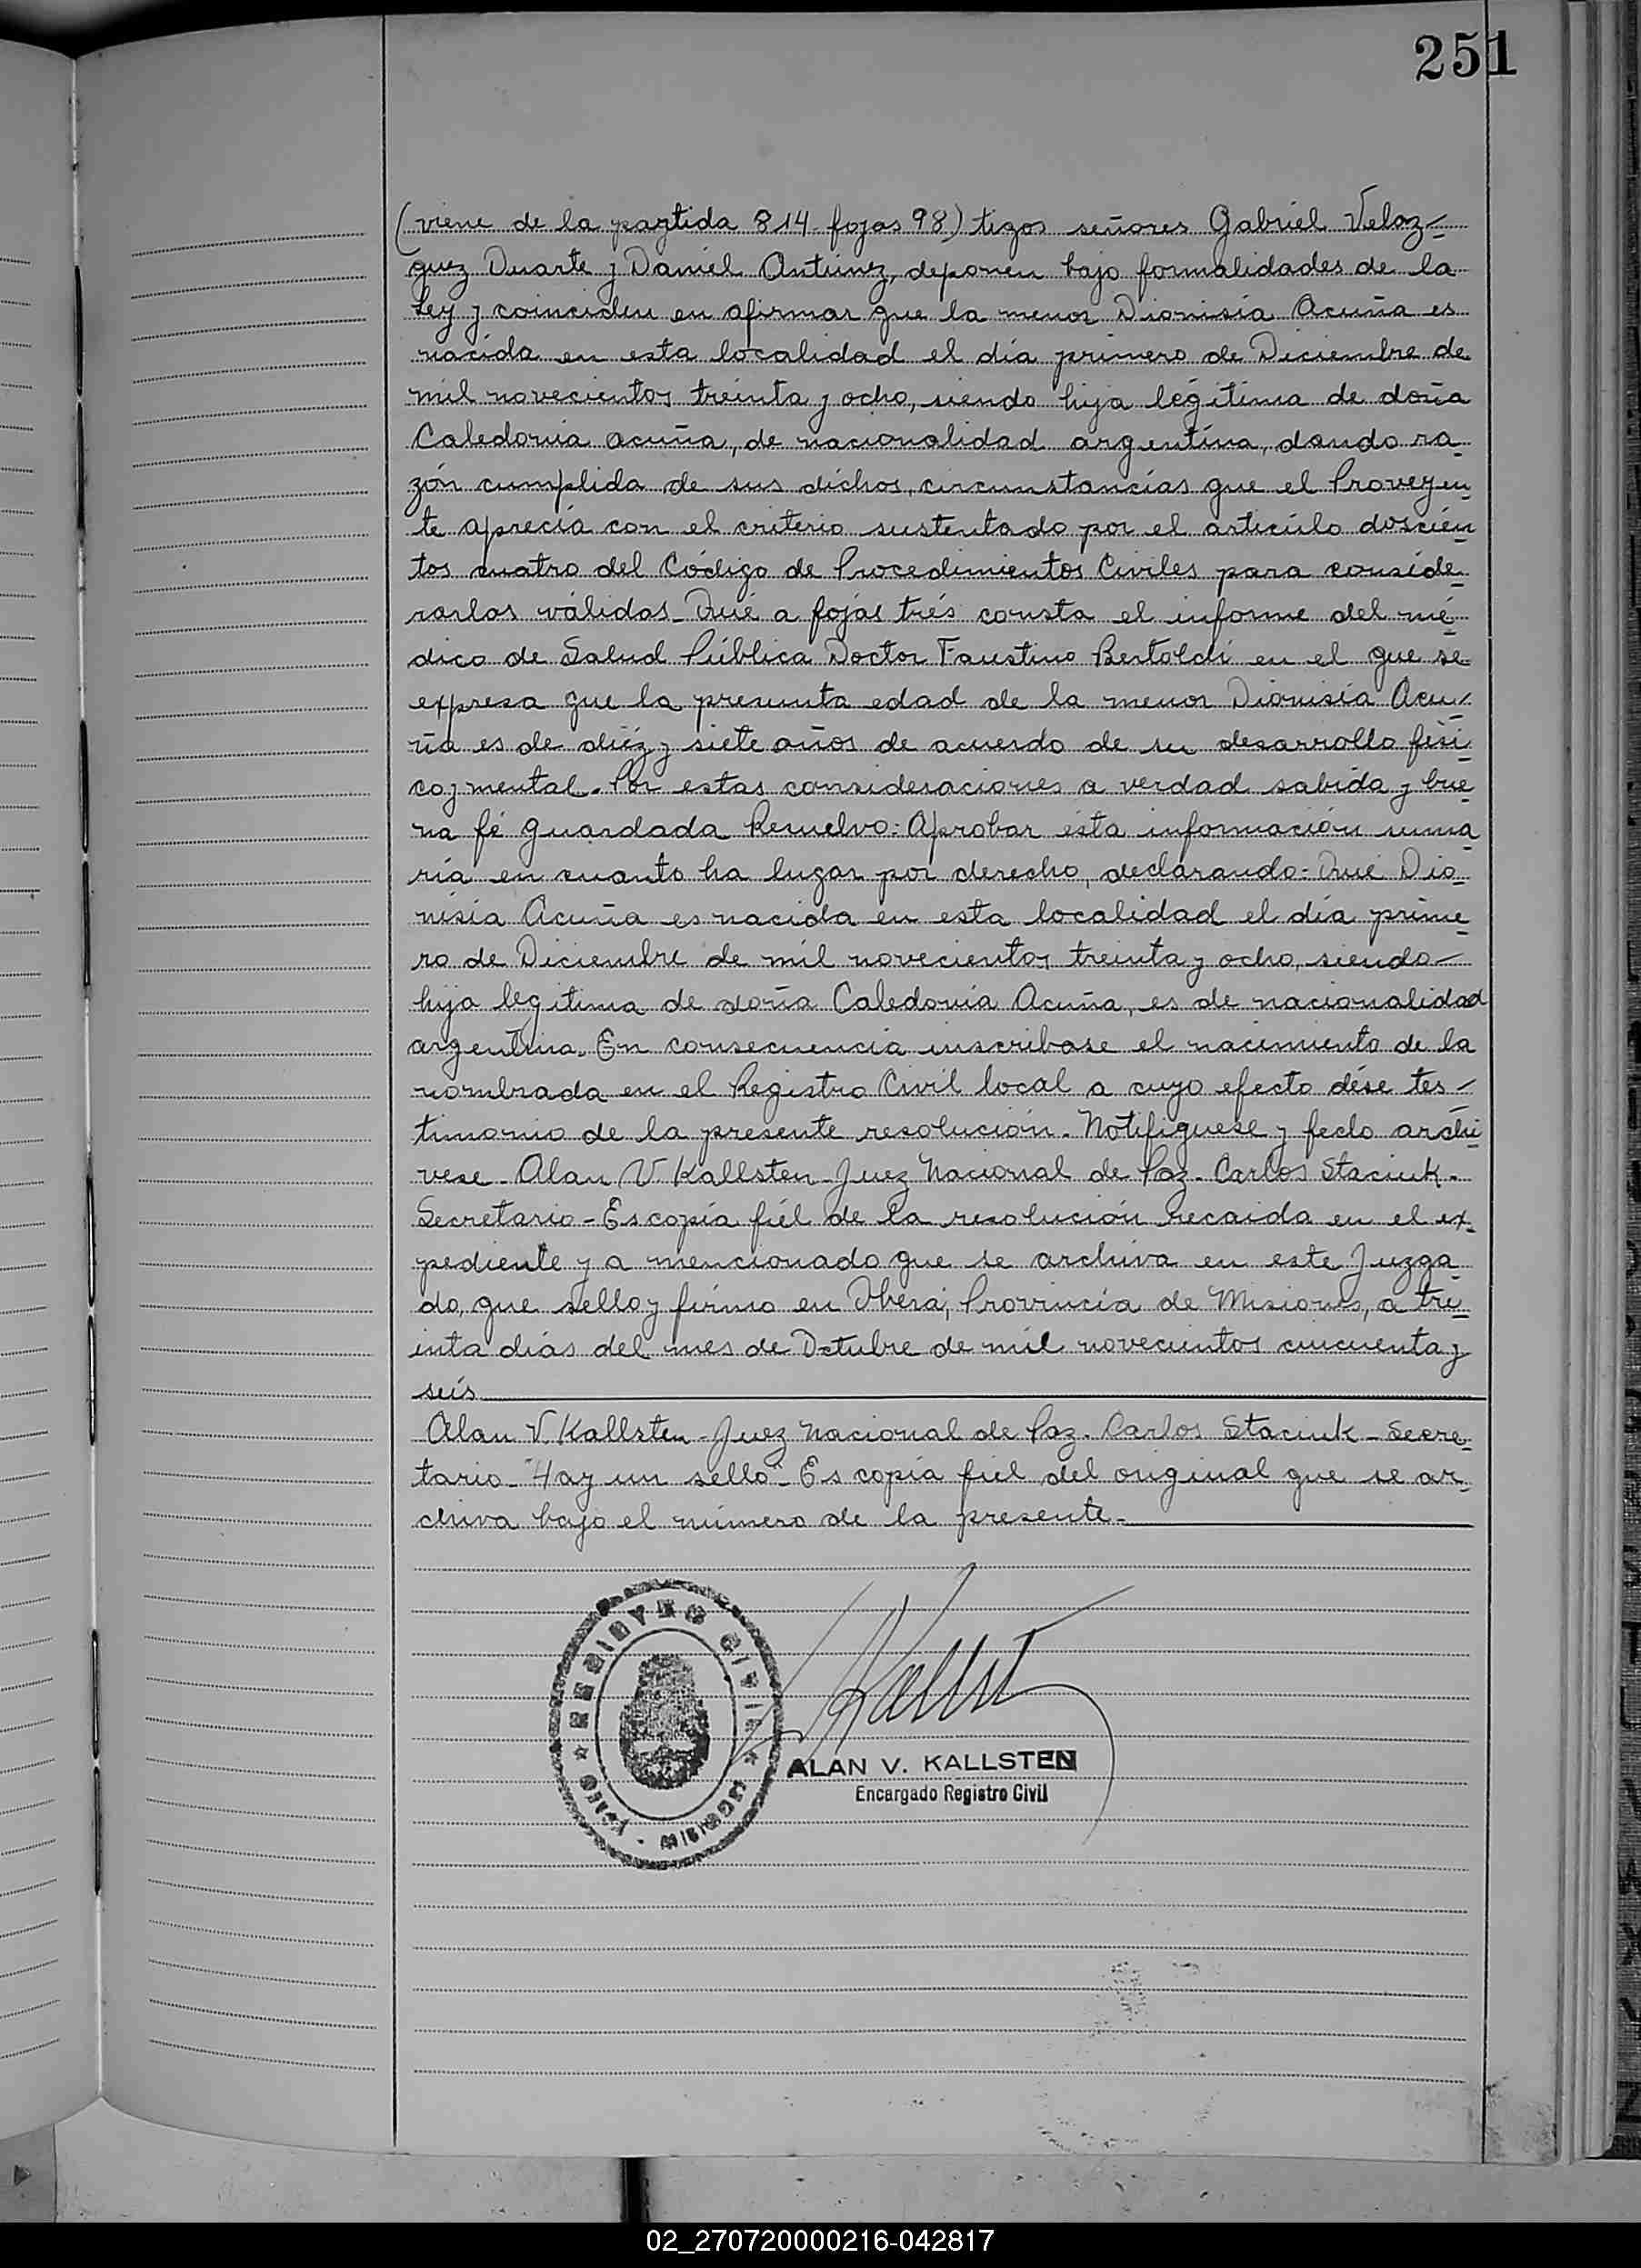 251
(viene de la partida 814 fojas 98) tigos señores Gabriel Velaz-
quez Duarte y Daniel Antúnez, deponen bajo formalidades de la
Ley y coinciden en afirmar que la menor Dionisia Acuña es
nacida en esta localidad el día primero de Diciembre de
mil novecientos treinta y ocho, siendo hija legítima de doña
Caledonia Acuña, de nacionalidad argentina, dando ra-
zón cumplida de sus dichos, circunstancias que el Proveyen-
te aprecia con el criterio sustentado por el artículo doscien-
tos cuatro del Código de Procedimientos Civiles para conside-
rarlos válidos_ Qué a fojas trés consta el informe del mé-
dico de Salud Pública Doctor Faustino Bertoldi en el que se
expresa que la presunta edad de la menor Dionisia Acu-
ña es de diéz y siete años de acuerdo de su desarrollo físi-
co y mental. Por estas consideraciones a verdad sabida y bue-
na fé guardada Resuelvo: Aprobar ésta información suma-
ria en cuanto ha lugar por derecho, declarando: Qué Dio-
nisia Acuña es nacida en esta localidad el día prime-
ro de Diciembre de mil novecientos treinta y ocho, siendo-
hija legítima de doña Caledonia Acuña, es de nacionalidad
argentina. En consecuencia inscribase el nacimiento de la
nombrada en el Registro Civil local a cuyo efecto dése tes-
timonio de la presente resolución. Notifíquese y fecho archí-
vese. Alan V. Kallsten-Juez Nacional de Paz. Carlos Staciuk.
Secretario-Es copia fiél de la resolución recaida en el ex-
pediente y a mencionado que se archiva en este Juzga-
do, que sello y firmo en Oberá, Provincia de Misiones, a tre-
inta días del mes de Octubre de mil novecientos cincuenta y
seis
Alan V. Kallsten-Juez Nacional de Paz. Carlos Staciuk-Secre-
tario-"Hay un sello"-Es copia fiel del original que se ar-
chiva bajo el número de la presente.-
CIVIL
Kallst
ALAN V. KALLSTEN
Encargado Registro Civil
02_270720000216-042817